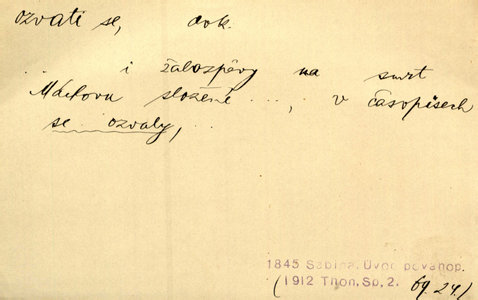 ozvati se, dok.
i žalozpěvy na smrt
Máchovu složené ..., v časopisech
se ozvaly,
1845 Sabina, Úvod povahop.
(1912 Thon, Sp, 2. 69.24.)